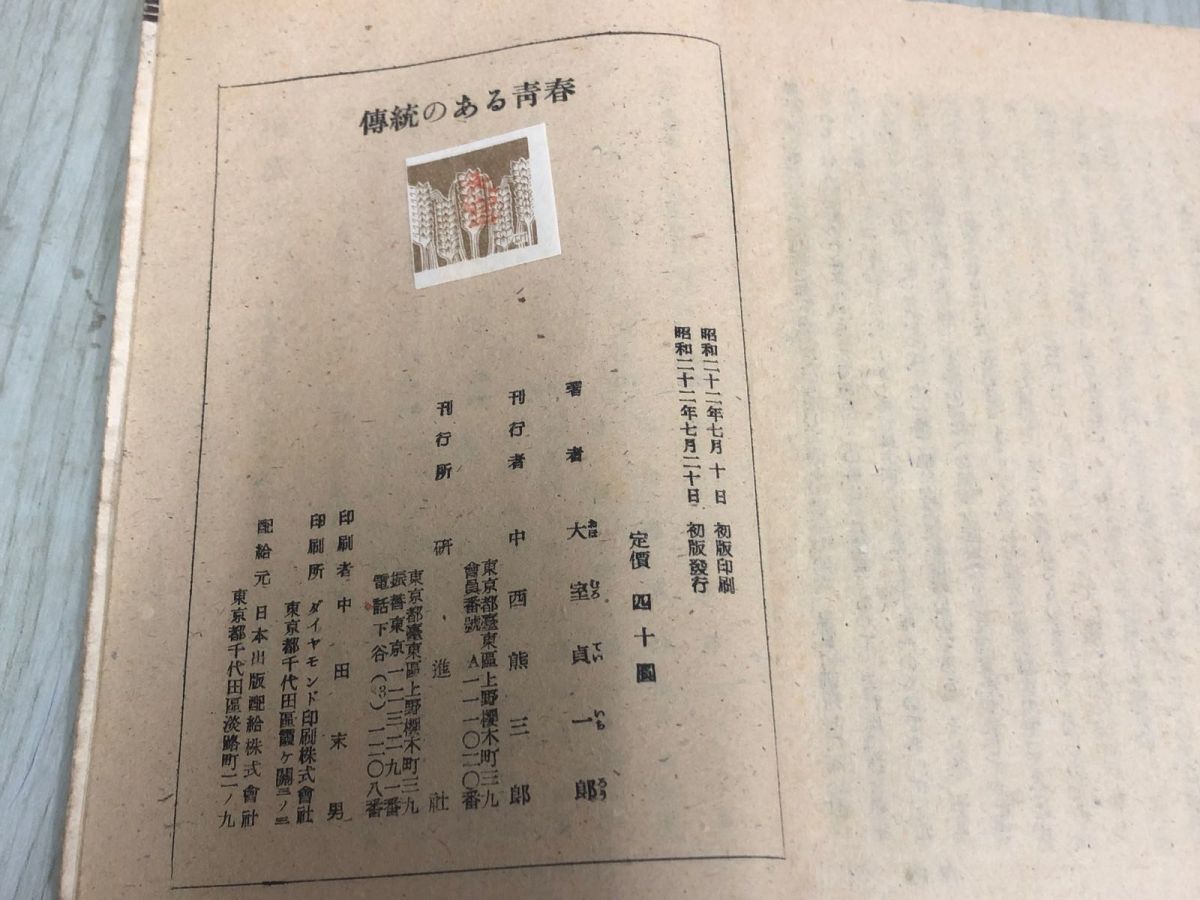 傳統のある靑春
昭和二十二年七月十日 初版印刷
昭和二十二年七月二十日 初版發行
定價 四十圓
著者 大室貞一郎
おほ むろ てい いち らう
刊行者 中西熊三郎
東京都臺東區上野櫻木町三九
會員番號 A一一一〇二〇番
刊行所 硏進社
東京都臺東區上野櫻木町三九
振替東京一一三二九一番
電話下谷(83)一二〇八番
印刷者 中田末男
印刷所 ダイヤモンド印刷株式會社
東京都千代田區霞ケ關三ノ三
配給元 日本出版配給株式會社
東京都千代田區淡路町二ノ九